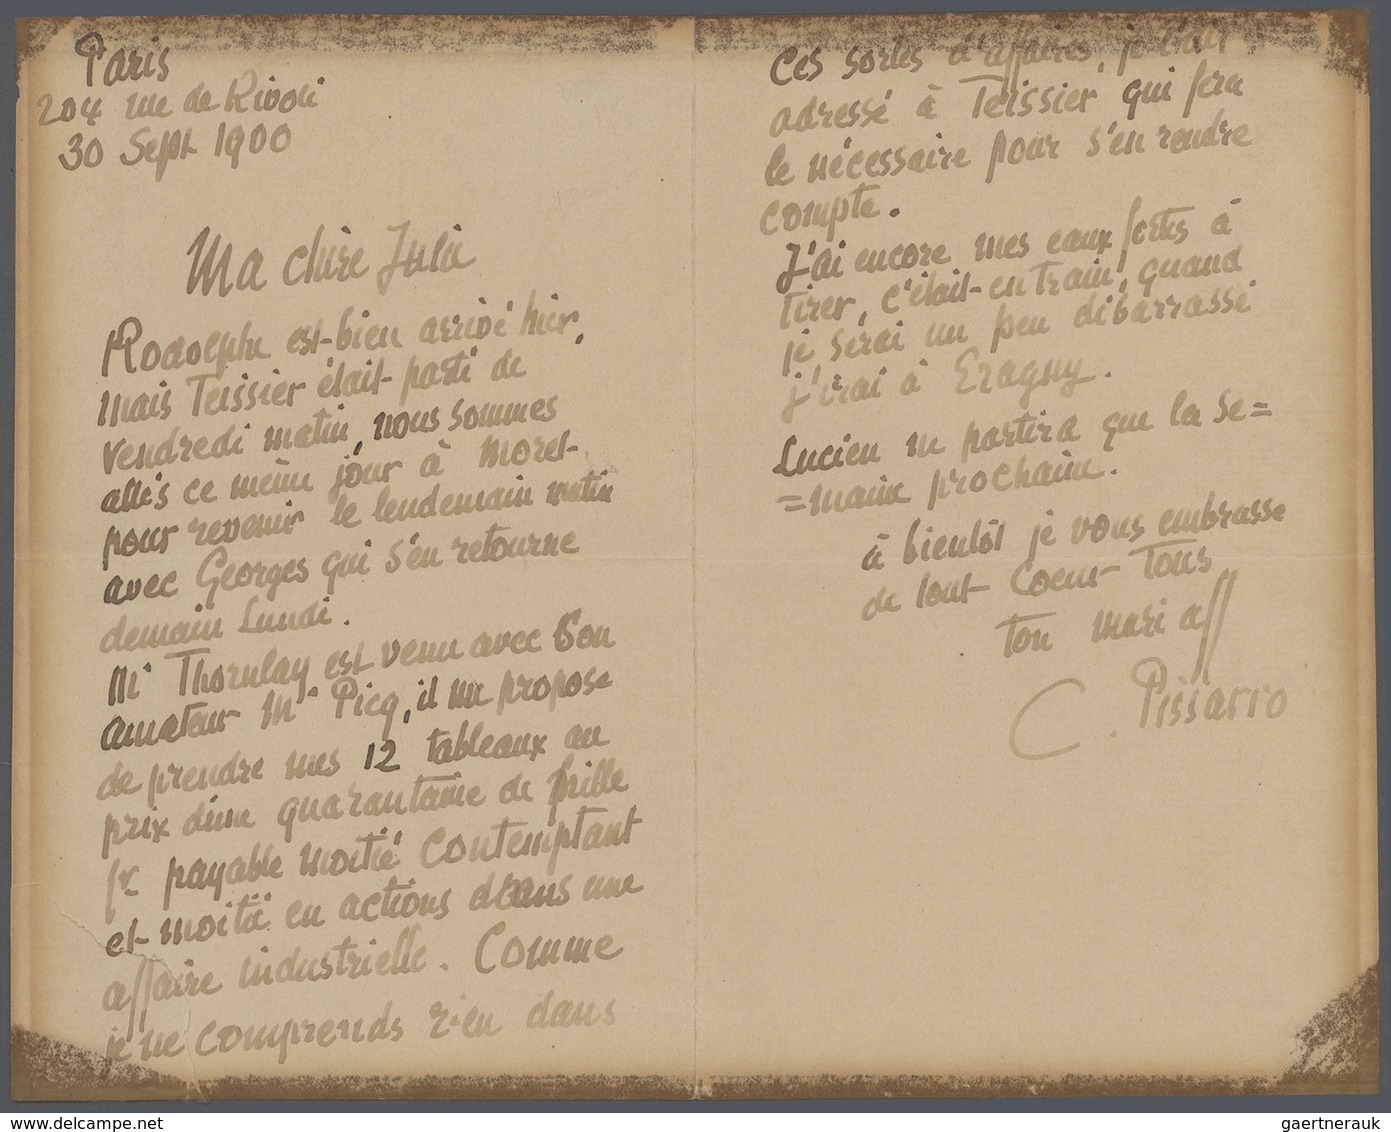 Paris
204 rue de Rivoli
30 Sept 1900
Ma chère Julie
Rodolphe est bien arrivé hier,
mais Teissier était parti de
vendredi matin, nous sommes
allés ce même jour à Moret
pour revenir le lendemain matin
avec Georges qui s'en retourne
demain Lundi.
Mr Thornlay est venu avec son
amateur Mr Picq, il me propose
de prendre mes 12 tableaux au
prix d'une quarantaine de mille
fr payable moitié contemptant
et moitié en actions dans une
affaire industrielle. Comme
je ne comprends rien dans
ces sortes d'affaires, je l'ai
adressé à Teissier qui fera
le nécessaire pour s'en rendre
compte.
J'ai encore mes eaux fortes à
tirer, c'était en train, quand
je serai un peu débarrassé
j'irai à Eragny.
Lucien ne partira que la se=
=maine prochaine.
à bientôt je vous embrasse
de tout coeur tous
ton mari aff
C. Pissarro
www.delcampe.net
gaertnerauk